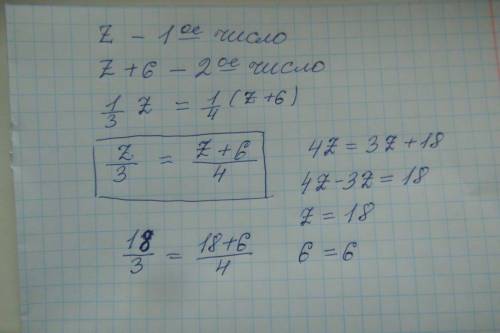 z – 1ое число
z + 6 – 2ое число
1/3 z = 1/4 (z+6)
z/3 = (z+6)/4
18/3 = (18+6)/4
4z = 3z + 18
4z - 3z = 18
z = 18
6 = 6